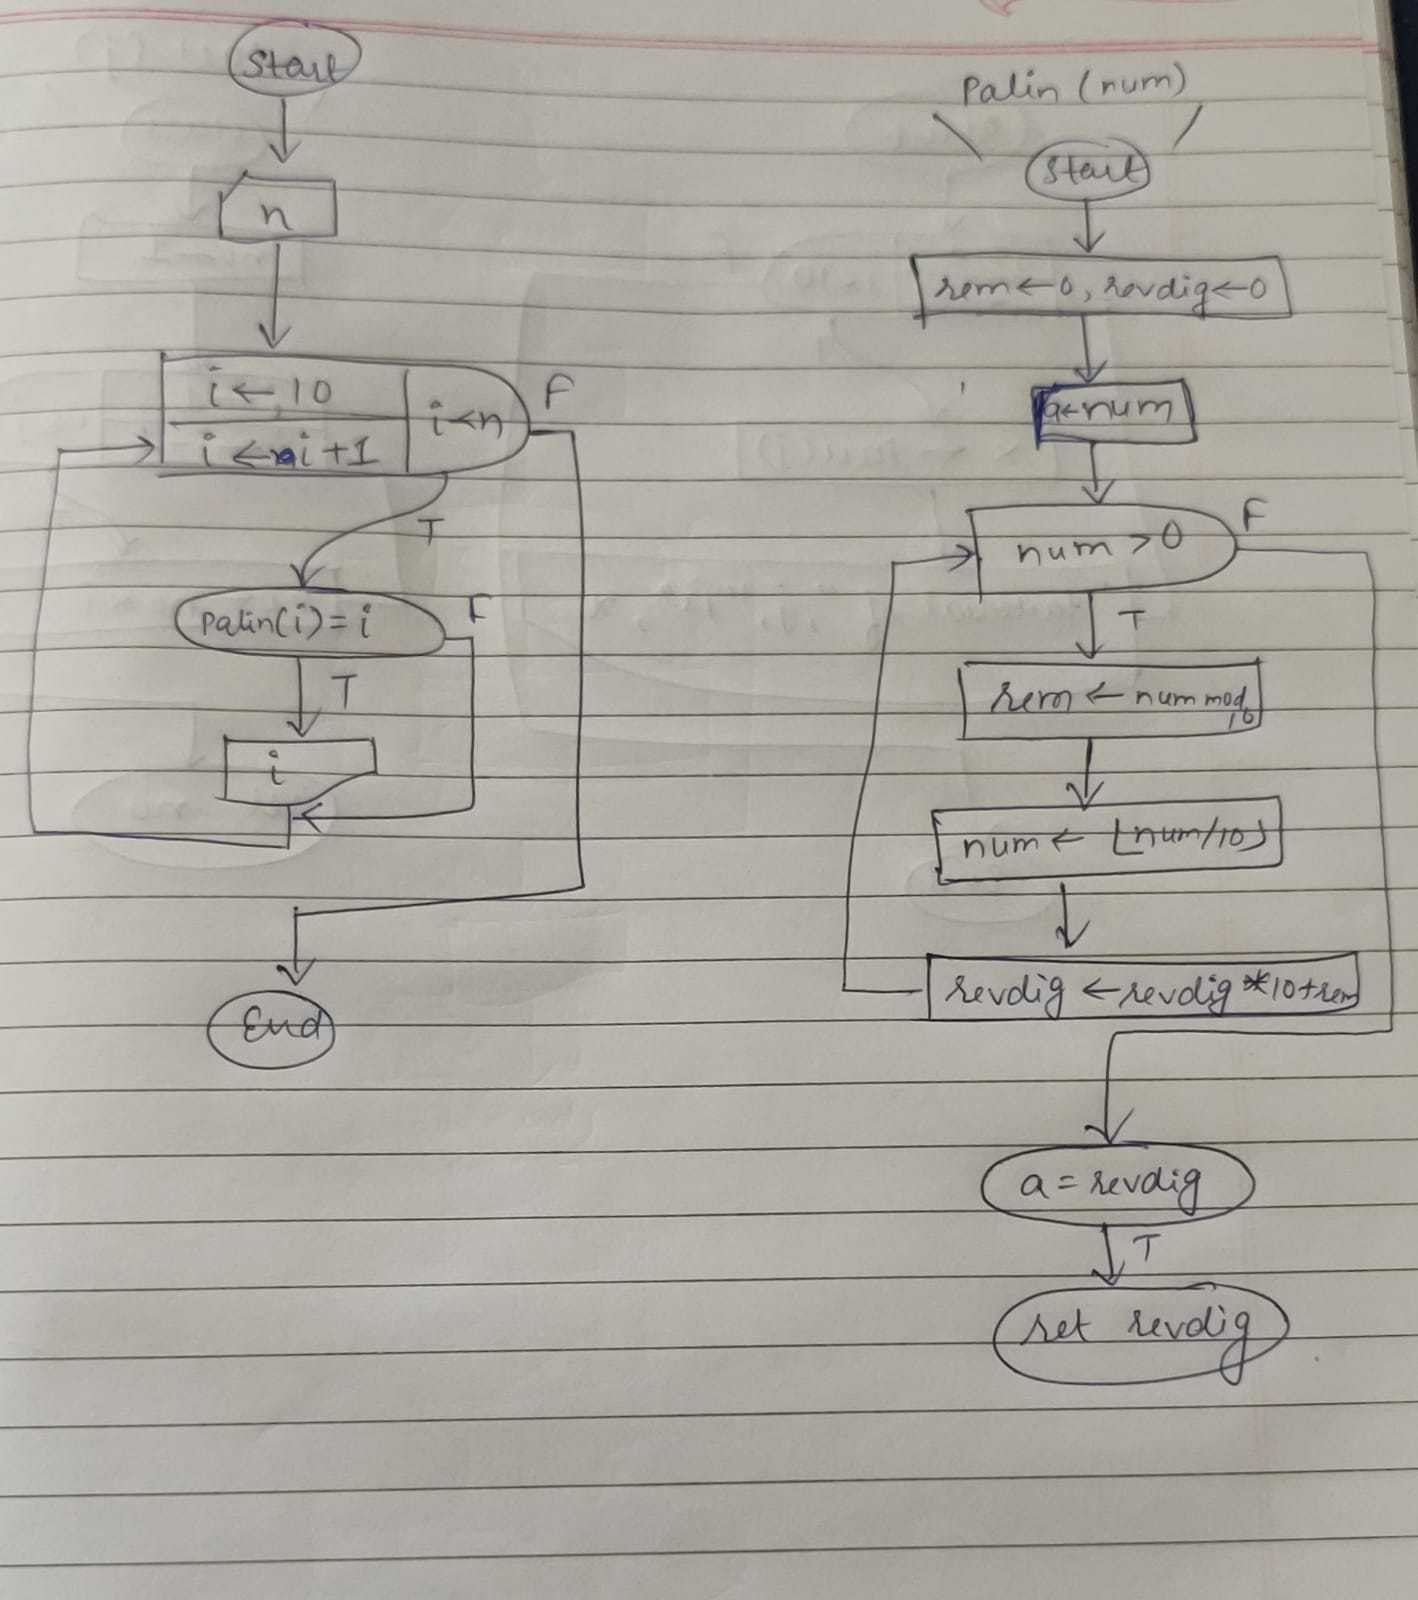 Start
n
i ← 10
i ← i + 1
i < n
F
T
Palin(i) = i
F
T
i
End
Palin (num)
Start
rem ← 0, revdig ← 0
a ← num
num > 0
F
T
rem ← num mod 10
num ← ⌊num/10⌋
revdig ← revdig * 10 + rem
a = revdig
T
ret revdig